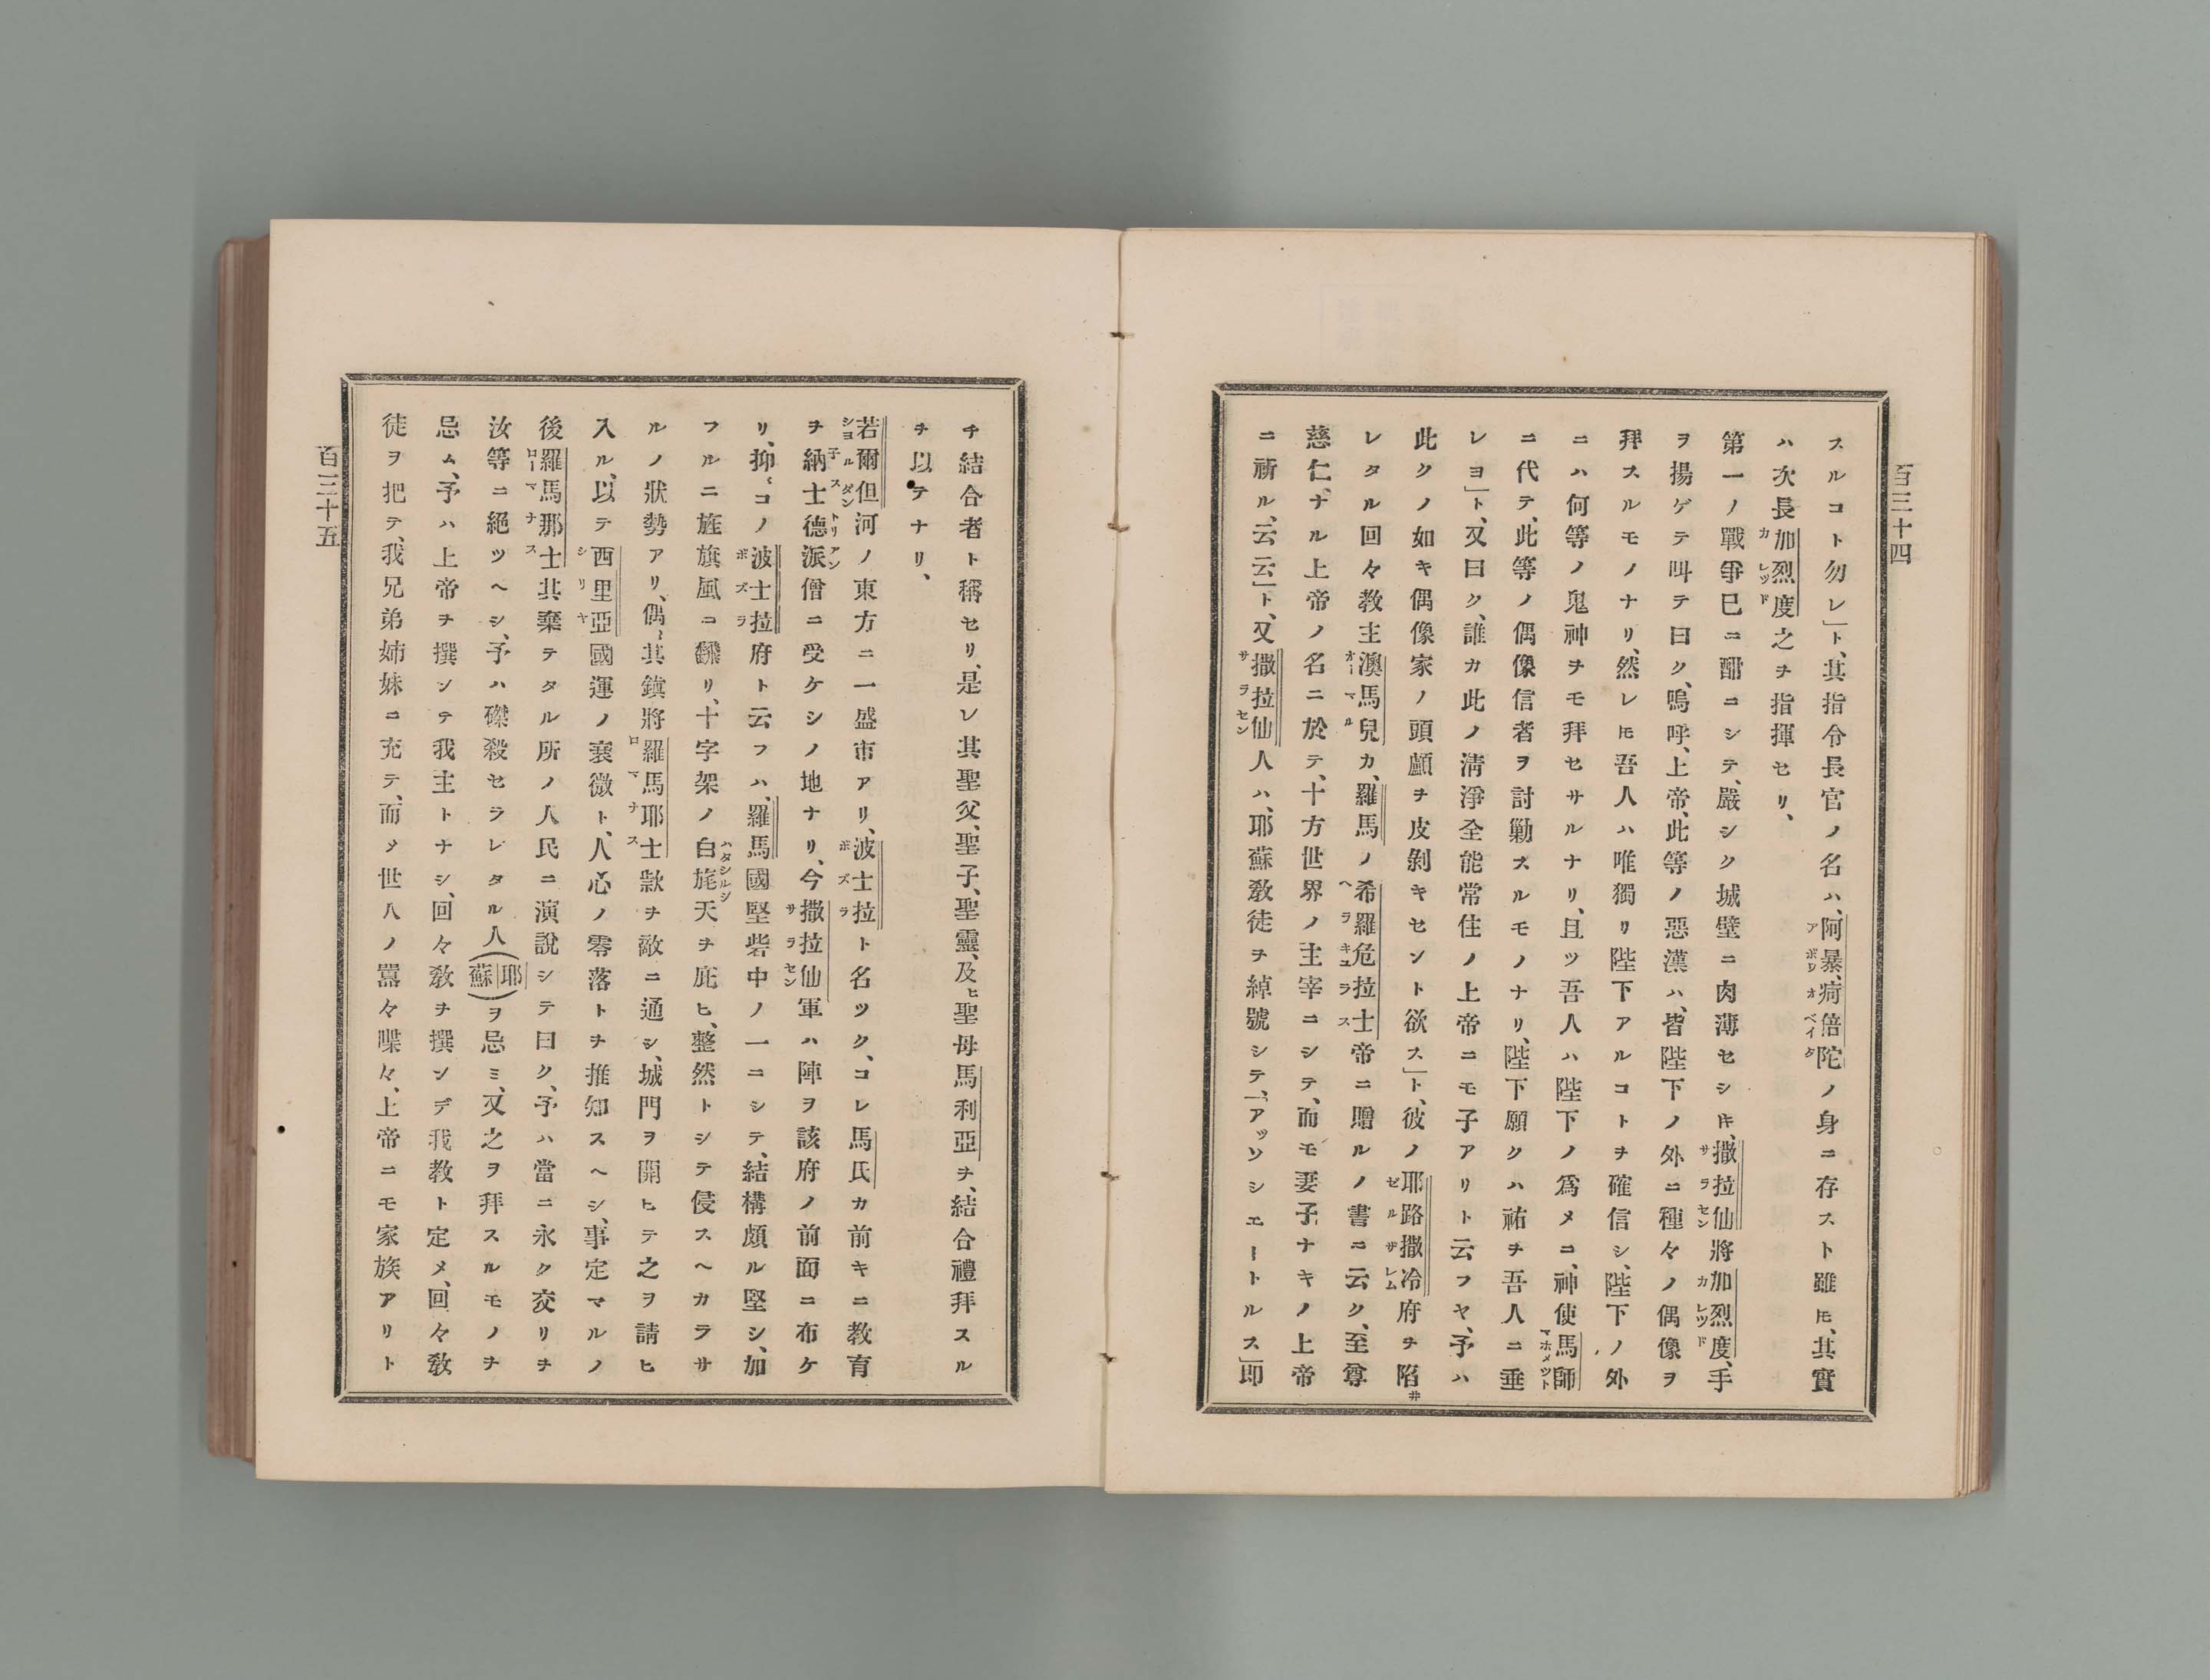 百三十四
スルコト勿レ」ト、其指令長官ノ名ハ、阿暴、疴倍陀ノ身ニ存スト雖𪜈、其實
ハ次長加烈度之ヲ指揮セリ、
第一ノ戰爭已ニ酣ニシテ、嚴シク城壁ニ肉薄セシ𪜈、撒拉仙將加烈度、手
ヲ揚ゲテ叫テ曰ク、嗚呼、上帝、此等ノ惡漢ハ、皆陛下ノ外ニ種々ノ偶像ヲ
拜スルモノナリ、然レ𪜈吾人ハ唯獨リ陛下アルコトヲ確信シ、陛下ノ外
ニハ何等ノ鬼神ヲモ拜セサルナリ、且ツ吾人ハ陛下ノ爲メニ、神使馬師
ニ代テ、此等ノ偶像信者ヲ討勦スルモノナリ、陛下願クハ祐ヲ吾人ニ垂
レヨ」ト、又曰ク、誰カ此ノ淸淨全能常住ノ上帝ニモ子アリト云フヤ、予ハ
此クノ如キ偶像家ノ頭顱ヲ皮剝キセント欲ス」ト、彼ノ耶路撒冷府ヲ陷
レタル回々教主澳馬兒カ、羅馬ノ希羅危拉士帝ニ贈ルノ書ニ云ク、至尊
慈仁、ナル上帝ノ名ニ於テ、十方世界ノ主宰ニシテ、而モ妻子ナキノ上帝
ニ祈ル、云云」ト、又撒拉仙人ハ、耶蘇敎徒ヲ綽號シテ、「アッソシエートルス」即
チ結合者ト稱セリ、是レ其聖父、聖子、聖靈、及ヒ聖母馬利亞ヲ、結合禮拜スル
ヲ以テナリ、
若爾但河ノ東方ニ一盛市アリ、波士拉ト名ツク、コレ馬氏カ前キニ教育
ヲ納士德派僧ニ受ケシノ地ナリ、今撒拉仙軍ハ陣ヲ該府ノ前面ニ布ケ
リ、抑〻コノ波士拉府ト云フハ、羅馬國堅砦中ノ一ニシテ、結構頗ル堅シ、加
フルニ旌旗風ニ飜リ、十字架ノ白旄天ヲ庇ヒ、整然トシテ侵スヘカラサ
ルノ狀勢アリ、偶〻其鎭將羅馬耶士欵ヲ敵ニ通シ、城門ヲ開ヒテ之ヲ請ヒ
入ル、以テ西里亞國運ノ衰微ト、人心ノ零落トヲ推知スヘシ、事定マルノ
後羅馬那士其棄テタル所ノ人民ニ演說シテ曰ク、予ハ當ニ永ク交リヲ
汝等ニ絕ツヘシ、予ハ磔殺セラレタル人(耶蘇)ヲ忌ミ、又之ヲ拜スルモノヲ
忌ム、予ハ上帝ヲ撰ンテ我主トナシ、回々敎ヲ撰ンデ我教ト定メ、回々敎
徒ヲ把テ、我兄弟姉妹ニ充テ、而メ世人ノ囂々喋々、上帝ニモ家族アリト
百三十五